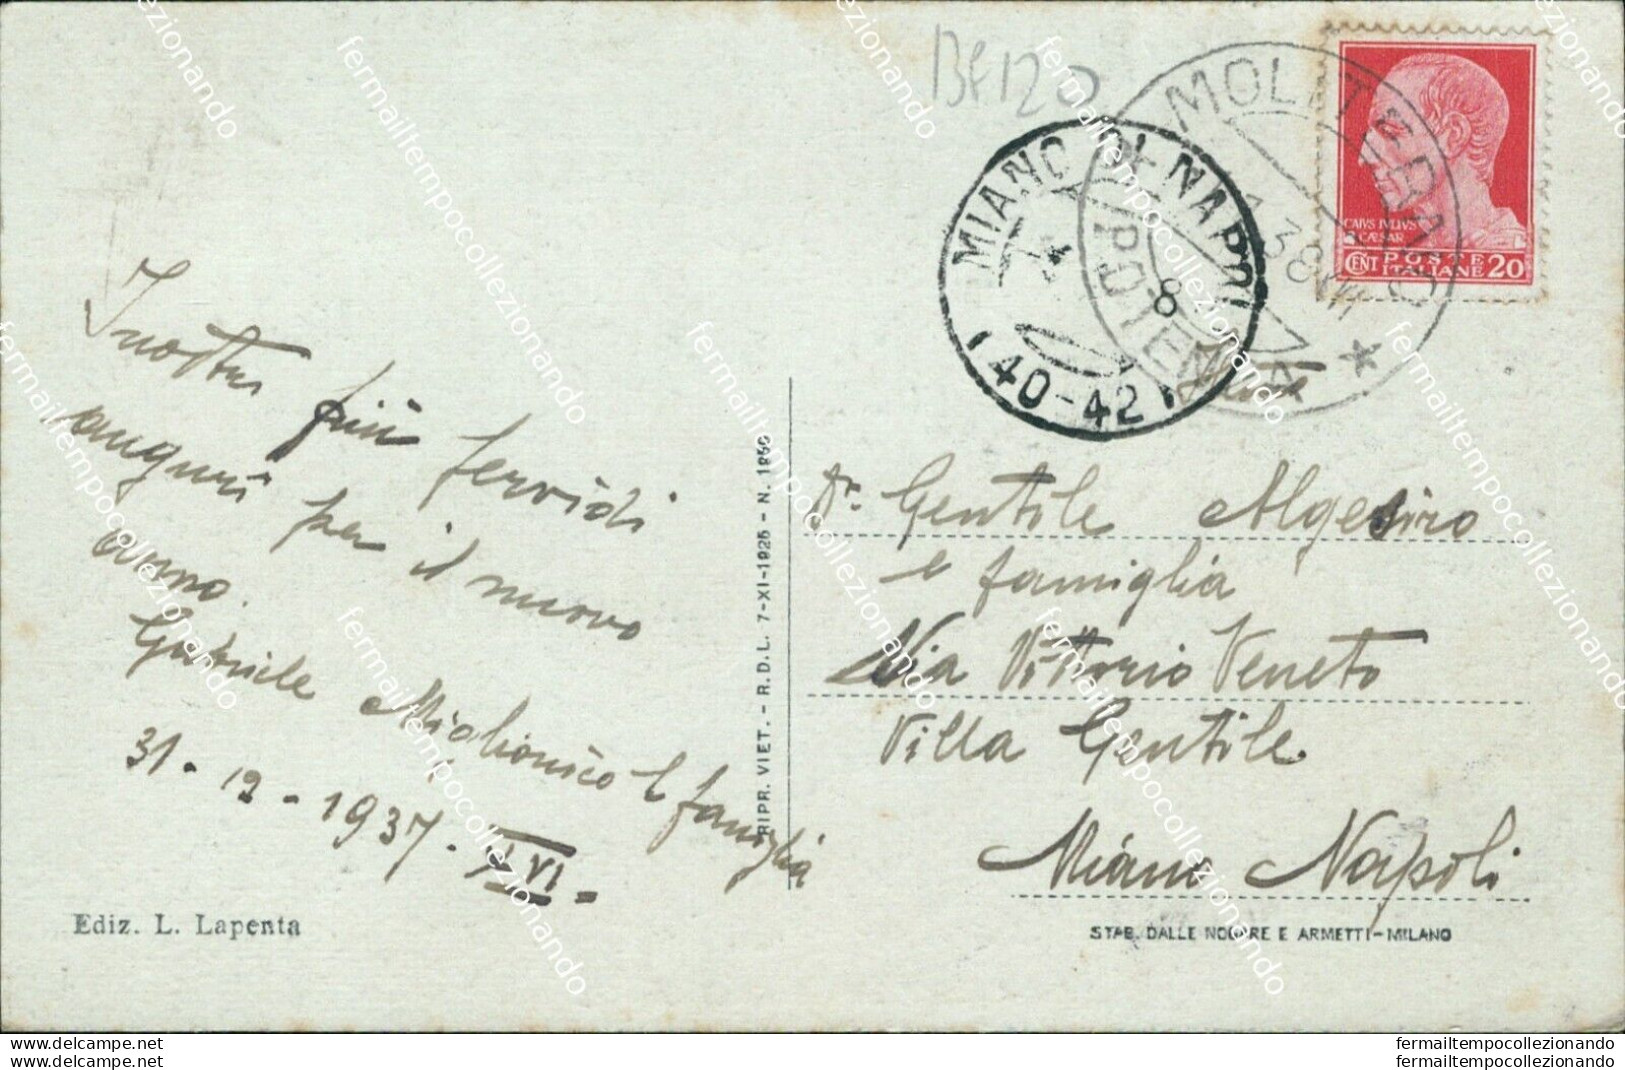 BF120
MOLITERNO
POTENZA
38 XVI
MIANO DI NAPOLI
8
(40-42)
CAIVS IVLIVS
CÆSAR
CENT POSTE ITALIANE 20
I nostri più fervidi
auguri per il nuovo
anno.
Gabriele Miglionico e famiglia
31-12-1937-XVI-
Ediz. L. Lapenta
RIPR. VIET. - R.D.L. 7-XI-1925 - N. 1950
Dr. Gentile Algesiro
e famiglia
Via Vittorio Veneto
Villa Gentile
Miano Napoli
STAB. DALLE NOGARE E ARMETTI-MILANO
fermailtempocollezionando
www.delcampe.net
fermailtempocollezionando
www.delcampe.net
fermailtempocollezionando